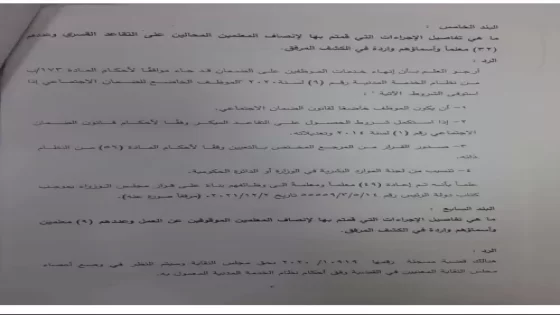 البند الخامس :
ما هي تفاصيل الإجراءات التي قمتم بها لإنصاف المعلمين المحالين على التقاعد القسري وعددهم
(٣٢) معلماً وأسماؤهم واردة في الكشف المرفق.
الرد :
أرجو العلم بأن إنهاء خدمات الموظفين على الضمان قد جاء موافقاً لأحكام المادة ١٧٣/ب
من نظام الخدمة المدنية رقم (٩) لسنة ٢٠٢٠ "الموظف الخاضع للضمان الاجتماعي إذا
استوفى الشروط الآتية":
١- أن يكون الموظف خاضعا لقانون الضمان الاجتماعي.
٢- إذا استكمل شروط الحصول على التقاعد المبكر وفقا لأحكام قانون الضمان
الاجتماعي رقم (١) لسنة ٢٠١٤ وتعديلاته.
٣- صدور القرار من المرجع المختص بالتعيين وفقا لأحكام المادة (٥٦) من النظام
ذاته.
٤- تنسيب من لجنة الموارد البشرية في الوزارة أو الدائرة الحكومية.
علما بأنه تم إعادة (٤٩) معلما ومعلمة الى وظائفهم بناء على قرار مجلس الوزراء بموجب
كتاب دولة الرئيس رقم تاريخ (مرفقا صورة عنه).
البند السابع :
ما هي تفاصيل الإجراءات التي قمتم بها لإنصاف المعلمين الموقوفين عن العمل وعددهم (٩) معلمين
وأسماؤهم واردة في الكشف المرفق.
الرد :
هنالك قضية مسجلة رقمها بحق مجلس النقابة وسيتم النظر في وضع أعضاء
مجلس النقابة المعنيين في القضية وفق أحكام نظام الخدمة المدنية المعمول به.